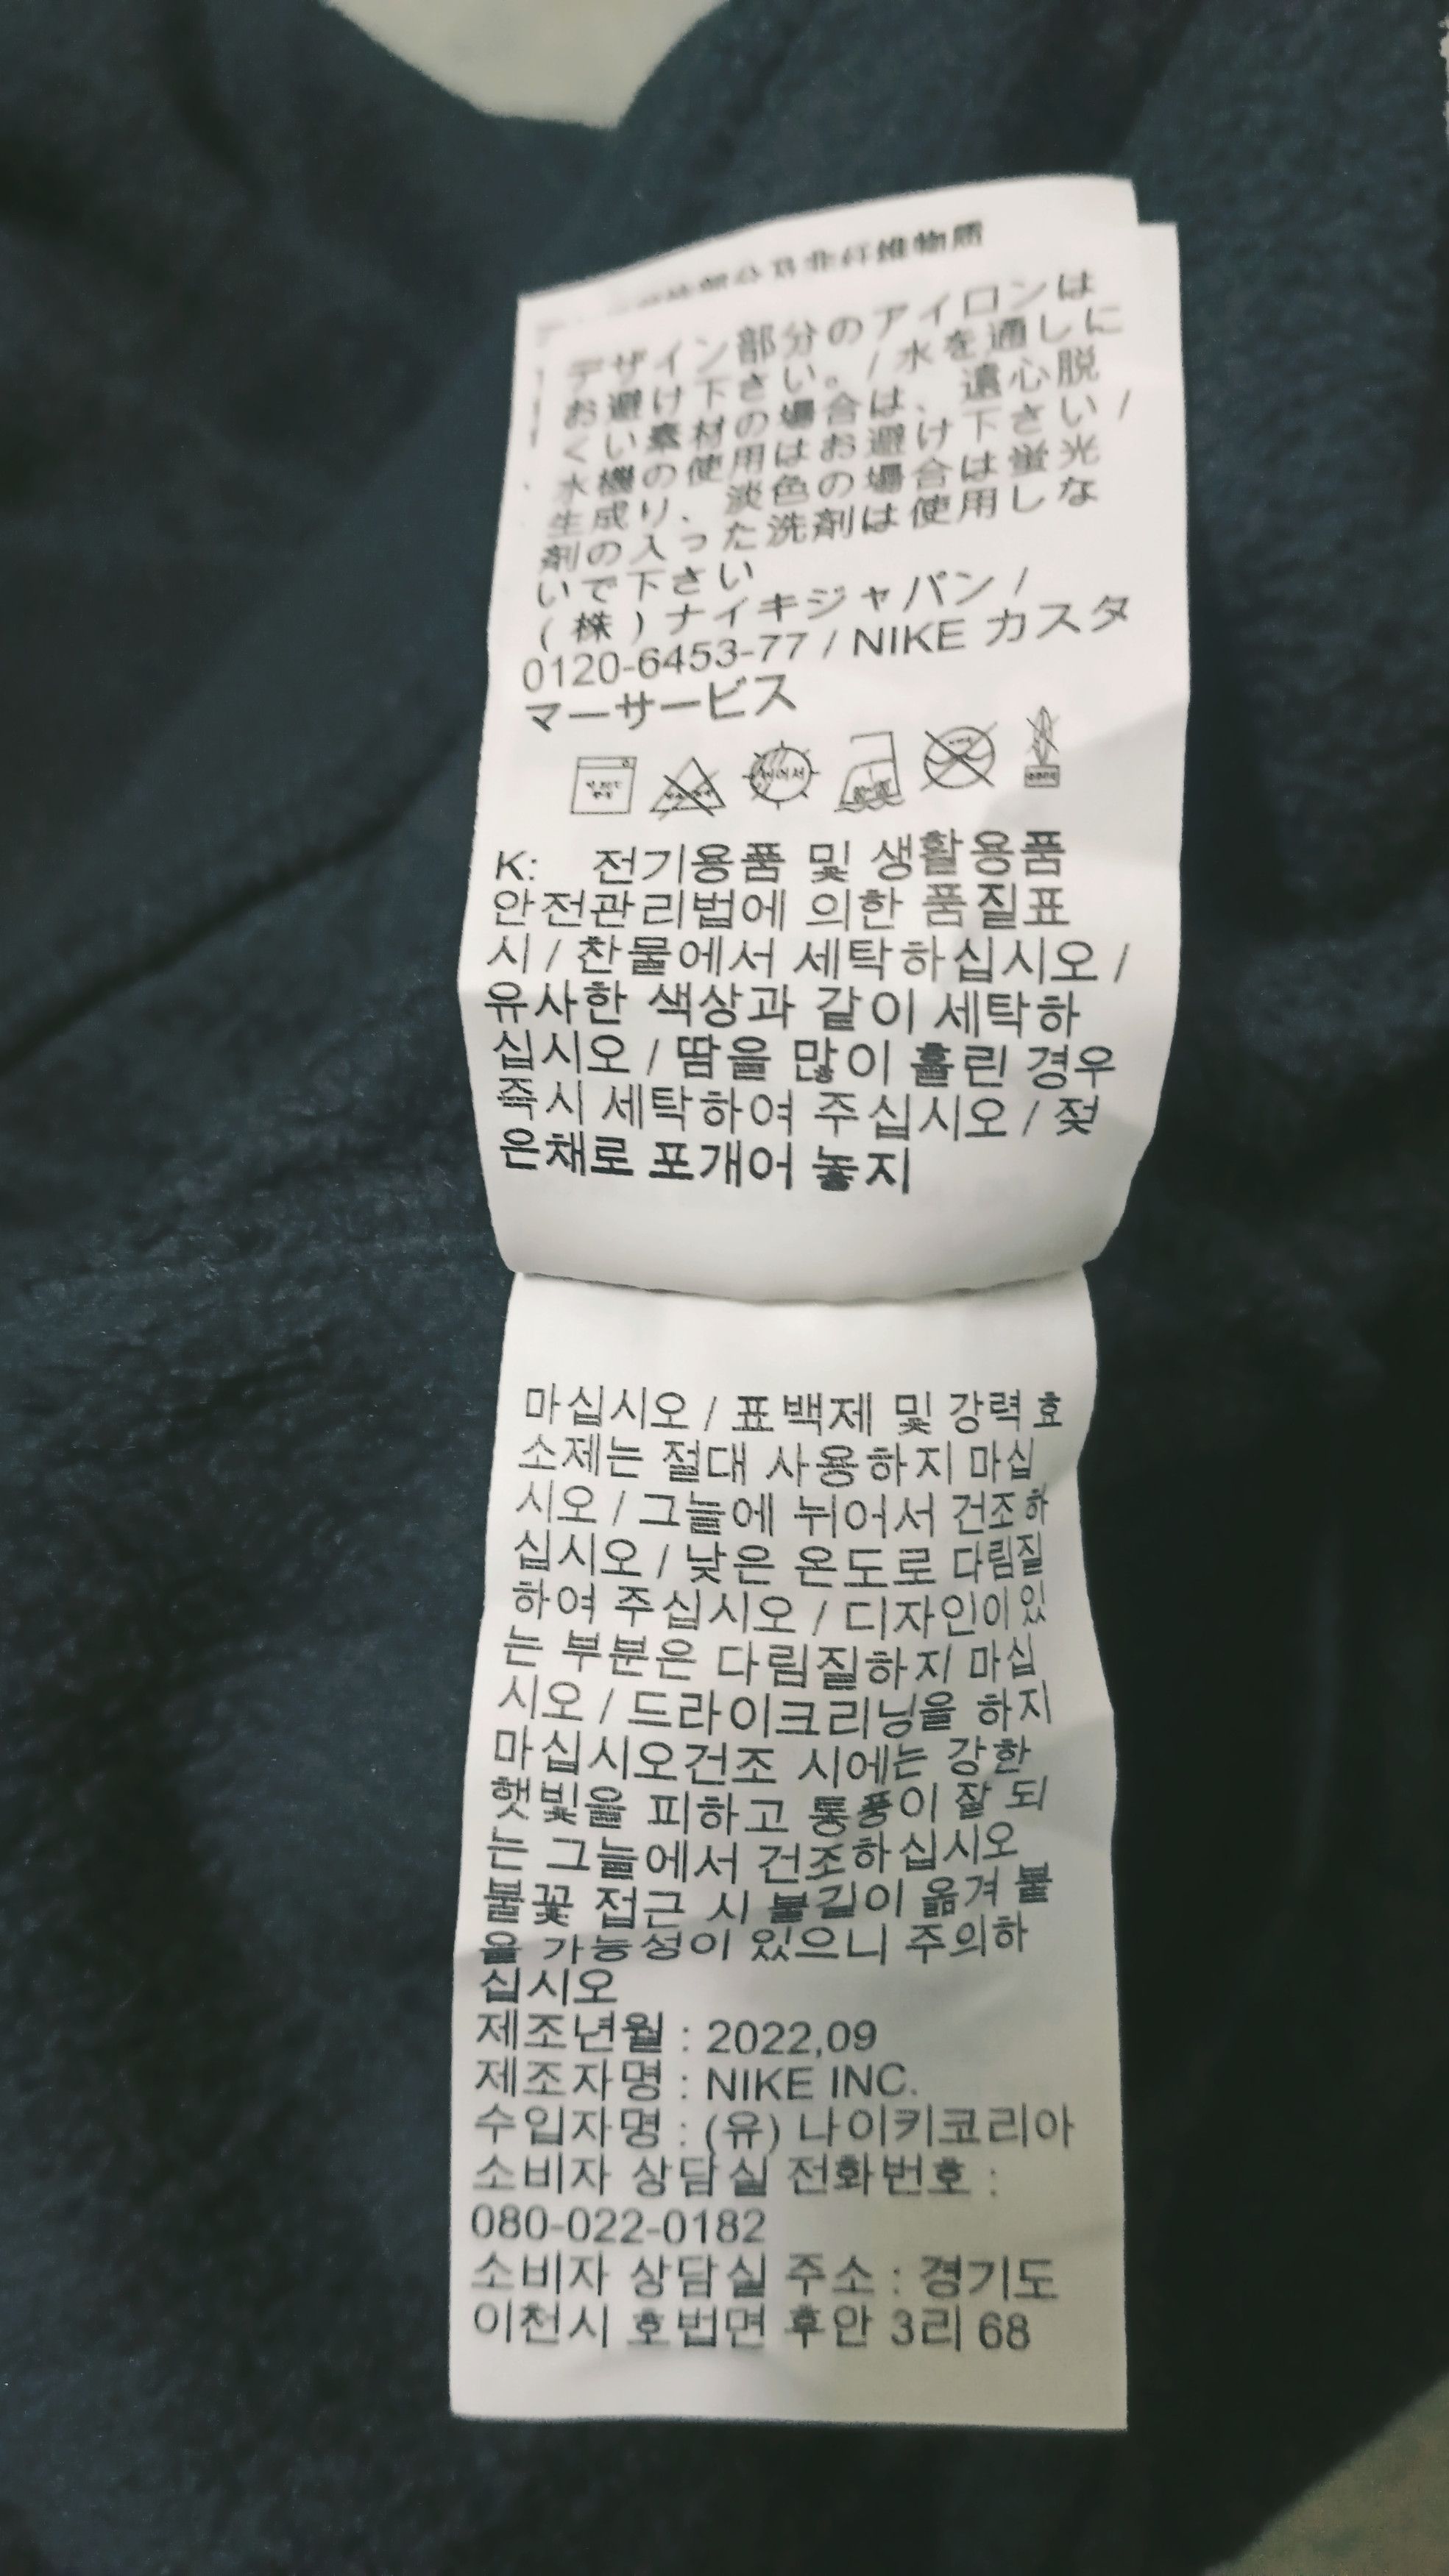 部分及非纤维物质
デザイン部分のアイロンは
お避け下さい。/ 水を通しに
くい素材の場合は、遠心脱
水機の使用はお避け下さい /
生成り、淡色の場合は蛍光
剤の入った洗剤は使用しな
いで下さい
(株)ナイキジャパン /
0120-6453-77 / NIKE カスタ
マーサービス
K: 전기용품 및 생활용품
안전관리법에 의한 품질표
시 / 찬물에서 세탁하십시오 /
유사한 색상과 같이 세탁하
십시오 / 땀을 많이 흘린 경우
즉시 세탁하여 주십시오 / 젖
은채로 포개어 놓지
마십시오 / 표백제 및 강력 효
소제는 절대 사용하지 마십
시오 / 그늘에 뉘어서 건조하
십시오 / 낮은 온도로 다림질
하여 주십시오 / 디자인이 있
는 부분은 다림질하지 마십
시오 / 드라이크리닝을 하지
마십시오건조 시에는 강한
햇빛을 피하고 통풍이 잘 되
는 그늘에서 건조하십시오
불꽃 접근 시 불길이 옮겨 붙
을 가능성이 있으니 주의하
십시오
제조년월 : 2022,09
제조자명 : NIKE INC.
수입자명 : (유) 나이키코리아
소비자 상담실 전화번호 :
080-022-0182
소비자 상담실 주소 : 경기도
이천시 호법면 후안 3리 68